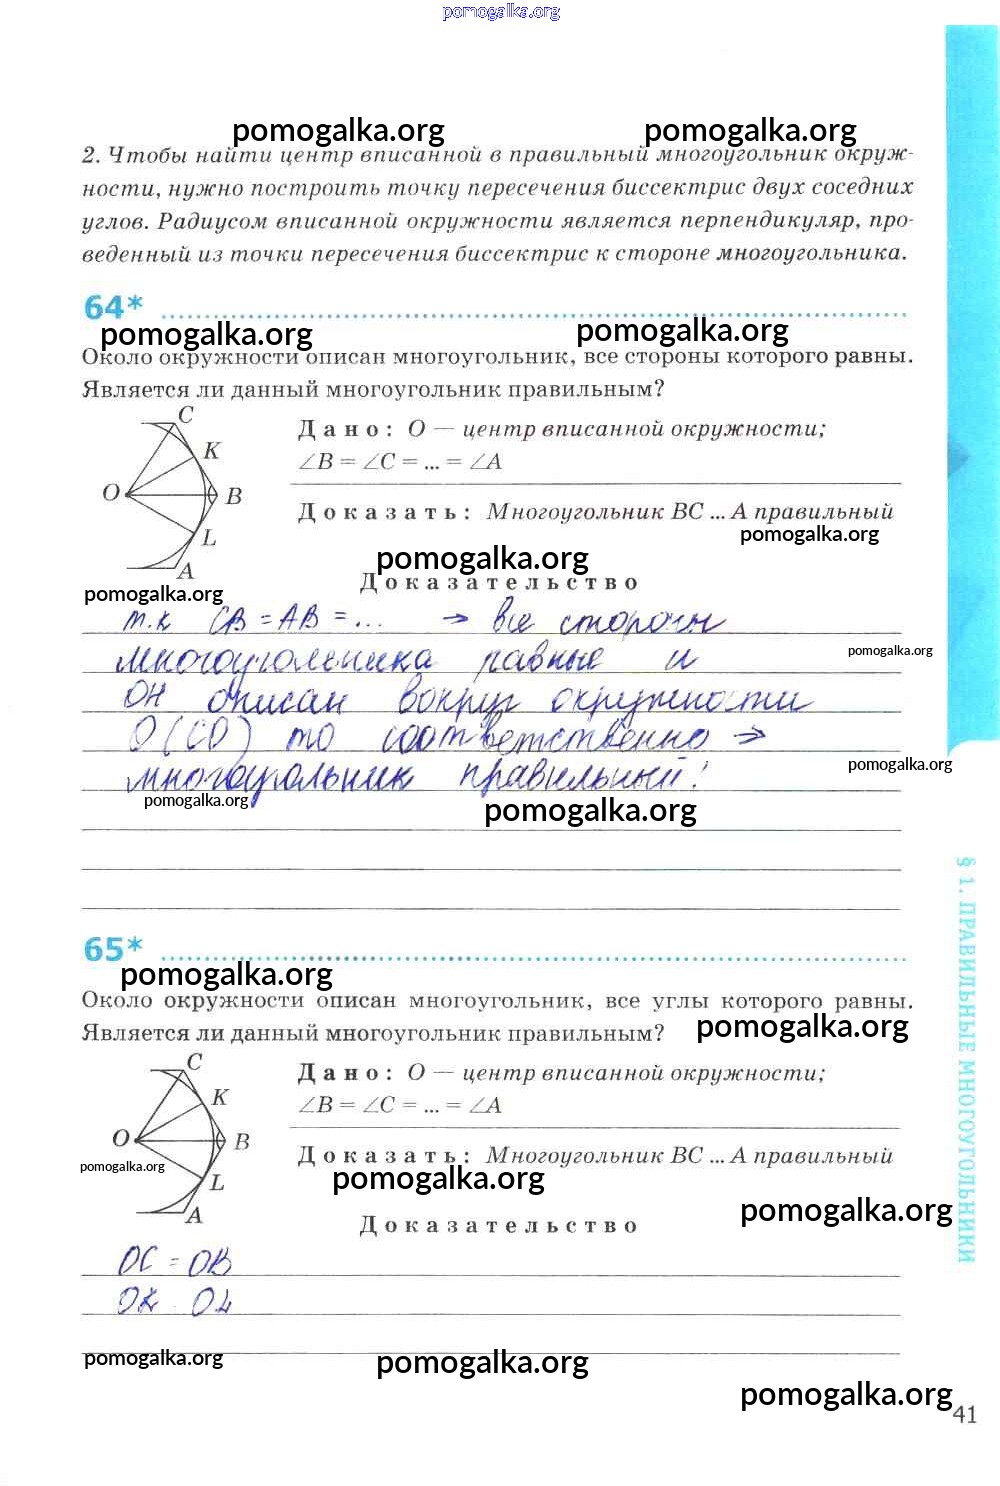 pomogalka.org
pomogalka.org pomogalka.org
2. Чтобы найти центр вписанной в правильный многоугольник окруж-
ности, нужно построить точку пересечения биссектрис двух соседних
углов. Радиусом вписанной окружности является перпендикуляр, про-
веденный из точки пересечения биссектрис к стороне многоугольника.
64*
pomogalka.org pomogalka.org
Около окружности описан многоугольник, все стороны которого равны.
Является ли данный многоугольник правильным?
C
K
O
B
L
A
Дано: O — центр вписанной окружности;
∠B = ∠C = ... = ∠A
Доказать: Многоугольник BC ... A правильный
pomogalka.org
pomogalka.org
Доказательство
pomogalka.org
т.к CB = AB = ... → все стороны
многоугольника равные и
pomogalka.org
он описан вокруг окружности
O(CO) то соответственно →
pomogalka.org
многоугольник правильный!
pomogalka.org
pomogalka.org
65*
pomogalka.org
Около окружности описан многоугольник, все углы которого равны.
Является ли данный многоугольник правильным?
pomogalka.org
C
K
O
B
L
A
pomogalka.org
Дано: O — центр вписанной окружности;
∠B = ∠C = ... = ∠A
Доказать: Многоугольник BC ... A правильный
pomogalka.org
pomogalka.org
Доказательство
OC = OB
OK OL
pomogalka.org
pomogalka.org
pomogalka.org
§ 1. ПРАВИЛЬНЫЕ МНОГОУГОЛЬНИКИ
41